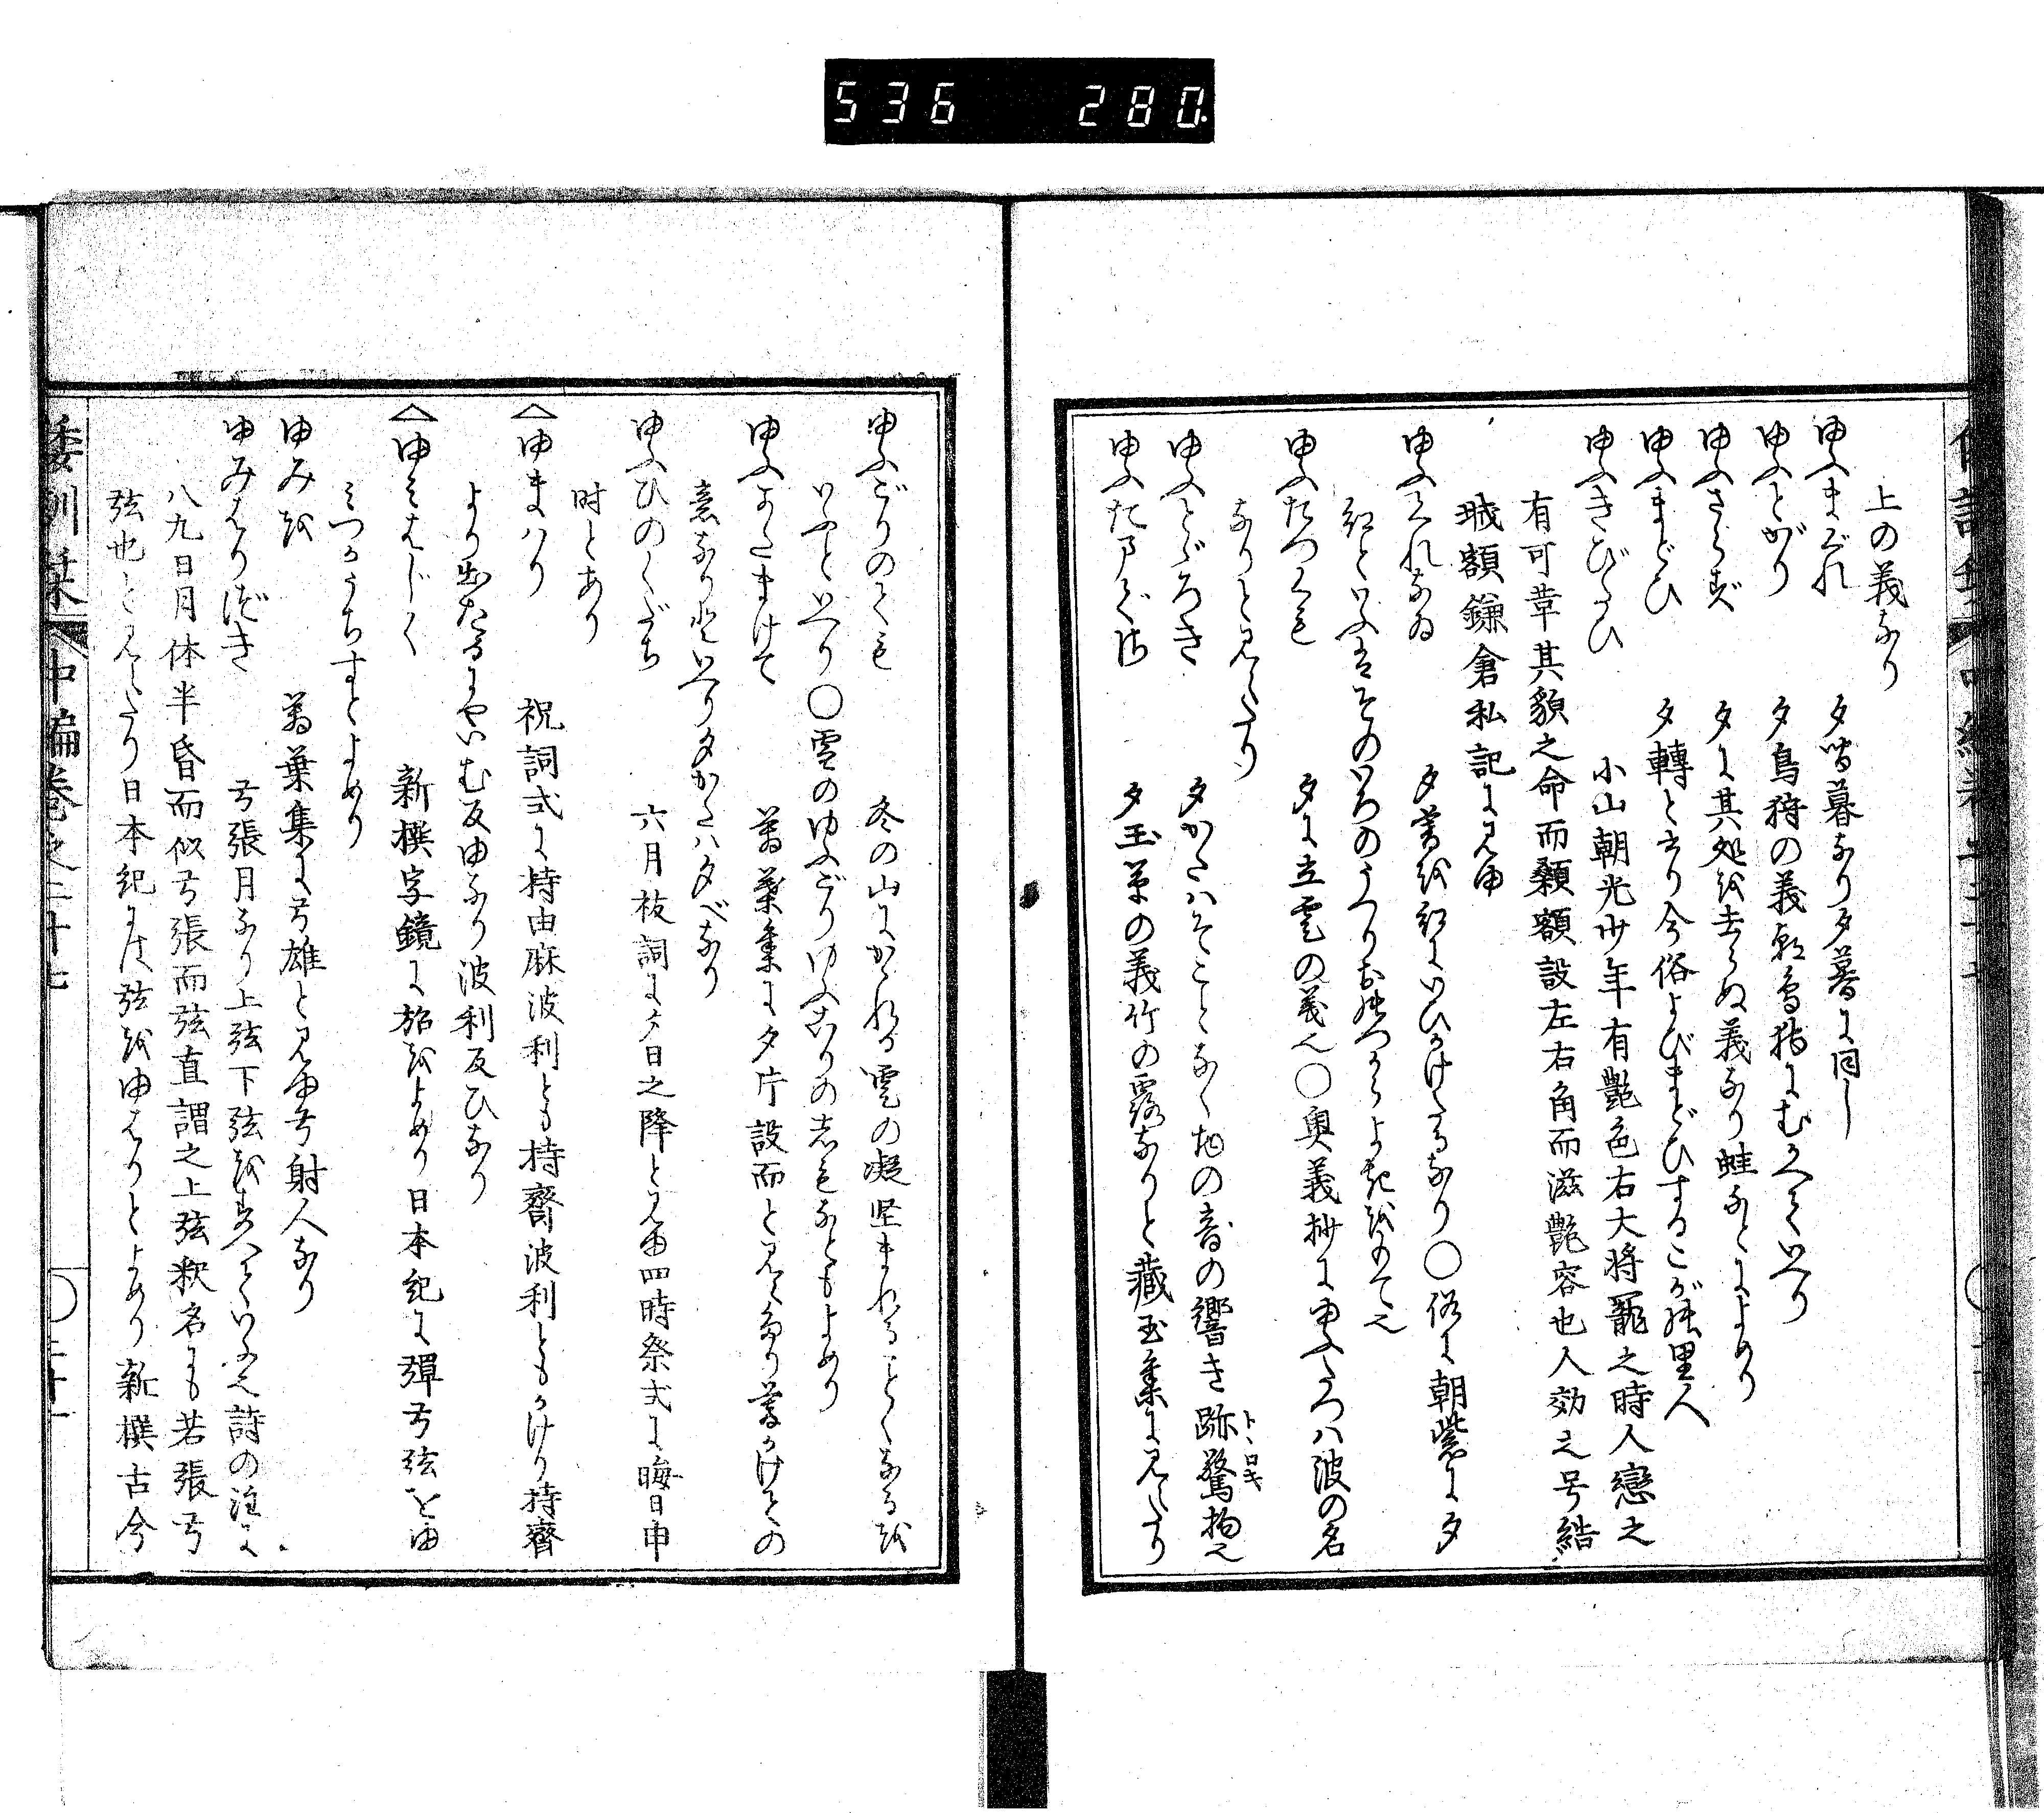 536 280.
上の義なり
ゆふまぐれ 夕間暮なり夕暮に同し
ゆふとがり 夕鳥狩の義朝鳥狩にむかへていへり
ゆふさらず 夕に其処を去らぬ義なり蛙などによめり
ゆふまどひ 夕轉と云り今俗よびまどひするこが跡里人
ゆふきこびたひ 小山朝光少年有艶色右大將寵之時人戀之
有可韋其貌之命而剃額設左右角而滋艶容也人効之号結
城額鎌倉私記に見ゆ
ゆふくれなゐ 夕暮を紅にいひかけたるなり〇俗に朝紫に夕
紅といふはそのいろのうつりおもつかよきをもて也
ゆふたつくも 夕に立雲の義也〇奥義抄にゆふたつハ波の名
なりと見えたり
ゆふとゞろき 夕かたハそことなく物の音の響き跡驚物也
トヽロキ
ゆふたまぐさ 夕玉草の義竹の露なりと藏玉集に見えたり
ゆふごりのくも 冬の山にかゝれる雲の凝堅まれることくなるを
いふといへり〇雲のゆふごりゆふこりの志もなともよめり
ゆふかたまけて 萬葉集に夕片設而と見えたり暮かけての
意なりといへり夕かたハ夕べなり
ゆふひのくだち 六月祓詞に夕日之降と見ゆ四時祭式に晦日申
时とあり
ゆまハり 祝詞式に持由麻波利とも持齋波利ともかけり持齋
より出たるにやいむ反ゆなり波利反ひなり
ゆミはじく 新撰字鏡に弨をよめり日本紀に彈弓弦をゆ
ミつるうちすとよめり
ゆみを 萬葉集に弓雄と見ゆ弓射人なり
ゆみはりづき 弓張月なり上弦下弦をかへていふ也詩の注に
八九日月体半昏而似弓張而弦直謂之上弦釈名にも若張弓
弦也と見えたり日本紀には弦をゆはりとよめり新撰古今
倭訓栞 中編巻之二十七